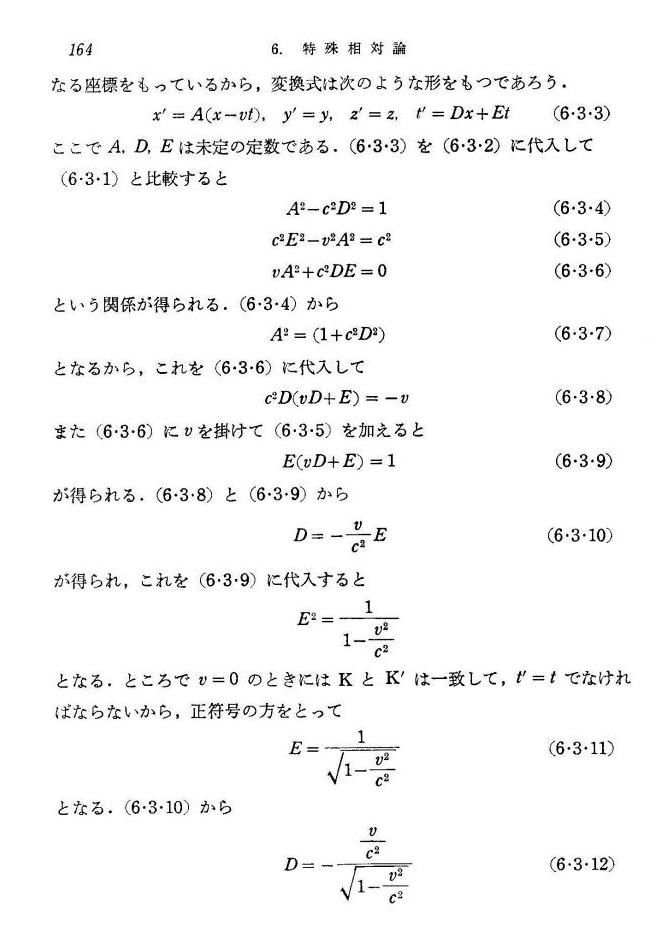 164 6. 特殊相対論
なる座標をもっているから，変換式は次のような形をもつであろう．
x′ = A(x−vt), y′ = y, z′ = z, t′ = Dx+Et (6·3·3)
ここで A, D, E は未定の定数である．(6·3·3) を (6·3·2) に代入して
(6·3·1) と比較すると
A²−c²D² = 1 (6·3·4)
c²E²−v²A² = c² (6·3·5)
vA²+c²DE = 0 (6·3·6)
という関係が得られる．(6·3·4) から
A² = (1+c²D²) (6·3·7)
となるから，これを (6·3·6) に代入して
c²D(vD+E) = −v (6·3·8)
また (6·3·6) に v を掛けて (6·3·5) を加えると
E(vD+E) = 1 (6·3·9)
が得られる．(6·3·8) と (6·3·9) から
D = −\frac{v}{c²}E (6·3·10)
が得られ，これを (6·3·9) に代入すると
E² = \frac{1}{1−\frac{v²}{c²}}
となる．ところで v = 0 のときには K と K′ は一致して，t′ = t でなけれ
ばならないから，正符号の方をとって
E = \frac{1}{\sqrt{1−\frac{v²}{c²}}} (6·3·11)
となる．(6·3·10) から
D = −\frac{\frac{v}{c²}}{\sqrt{1−\frac{v²}{c²}}} (6·3·12)